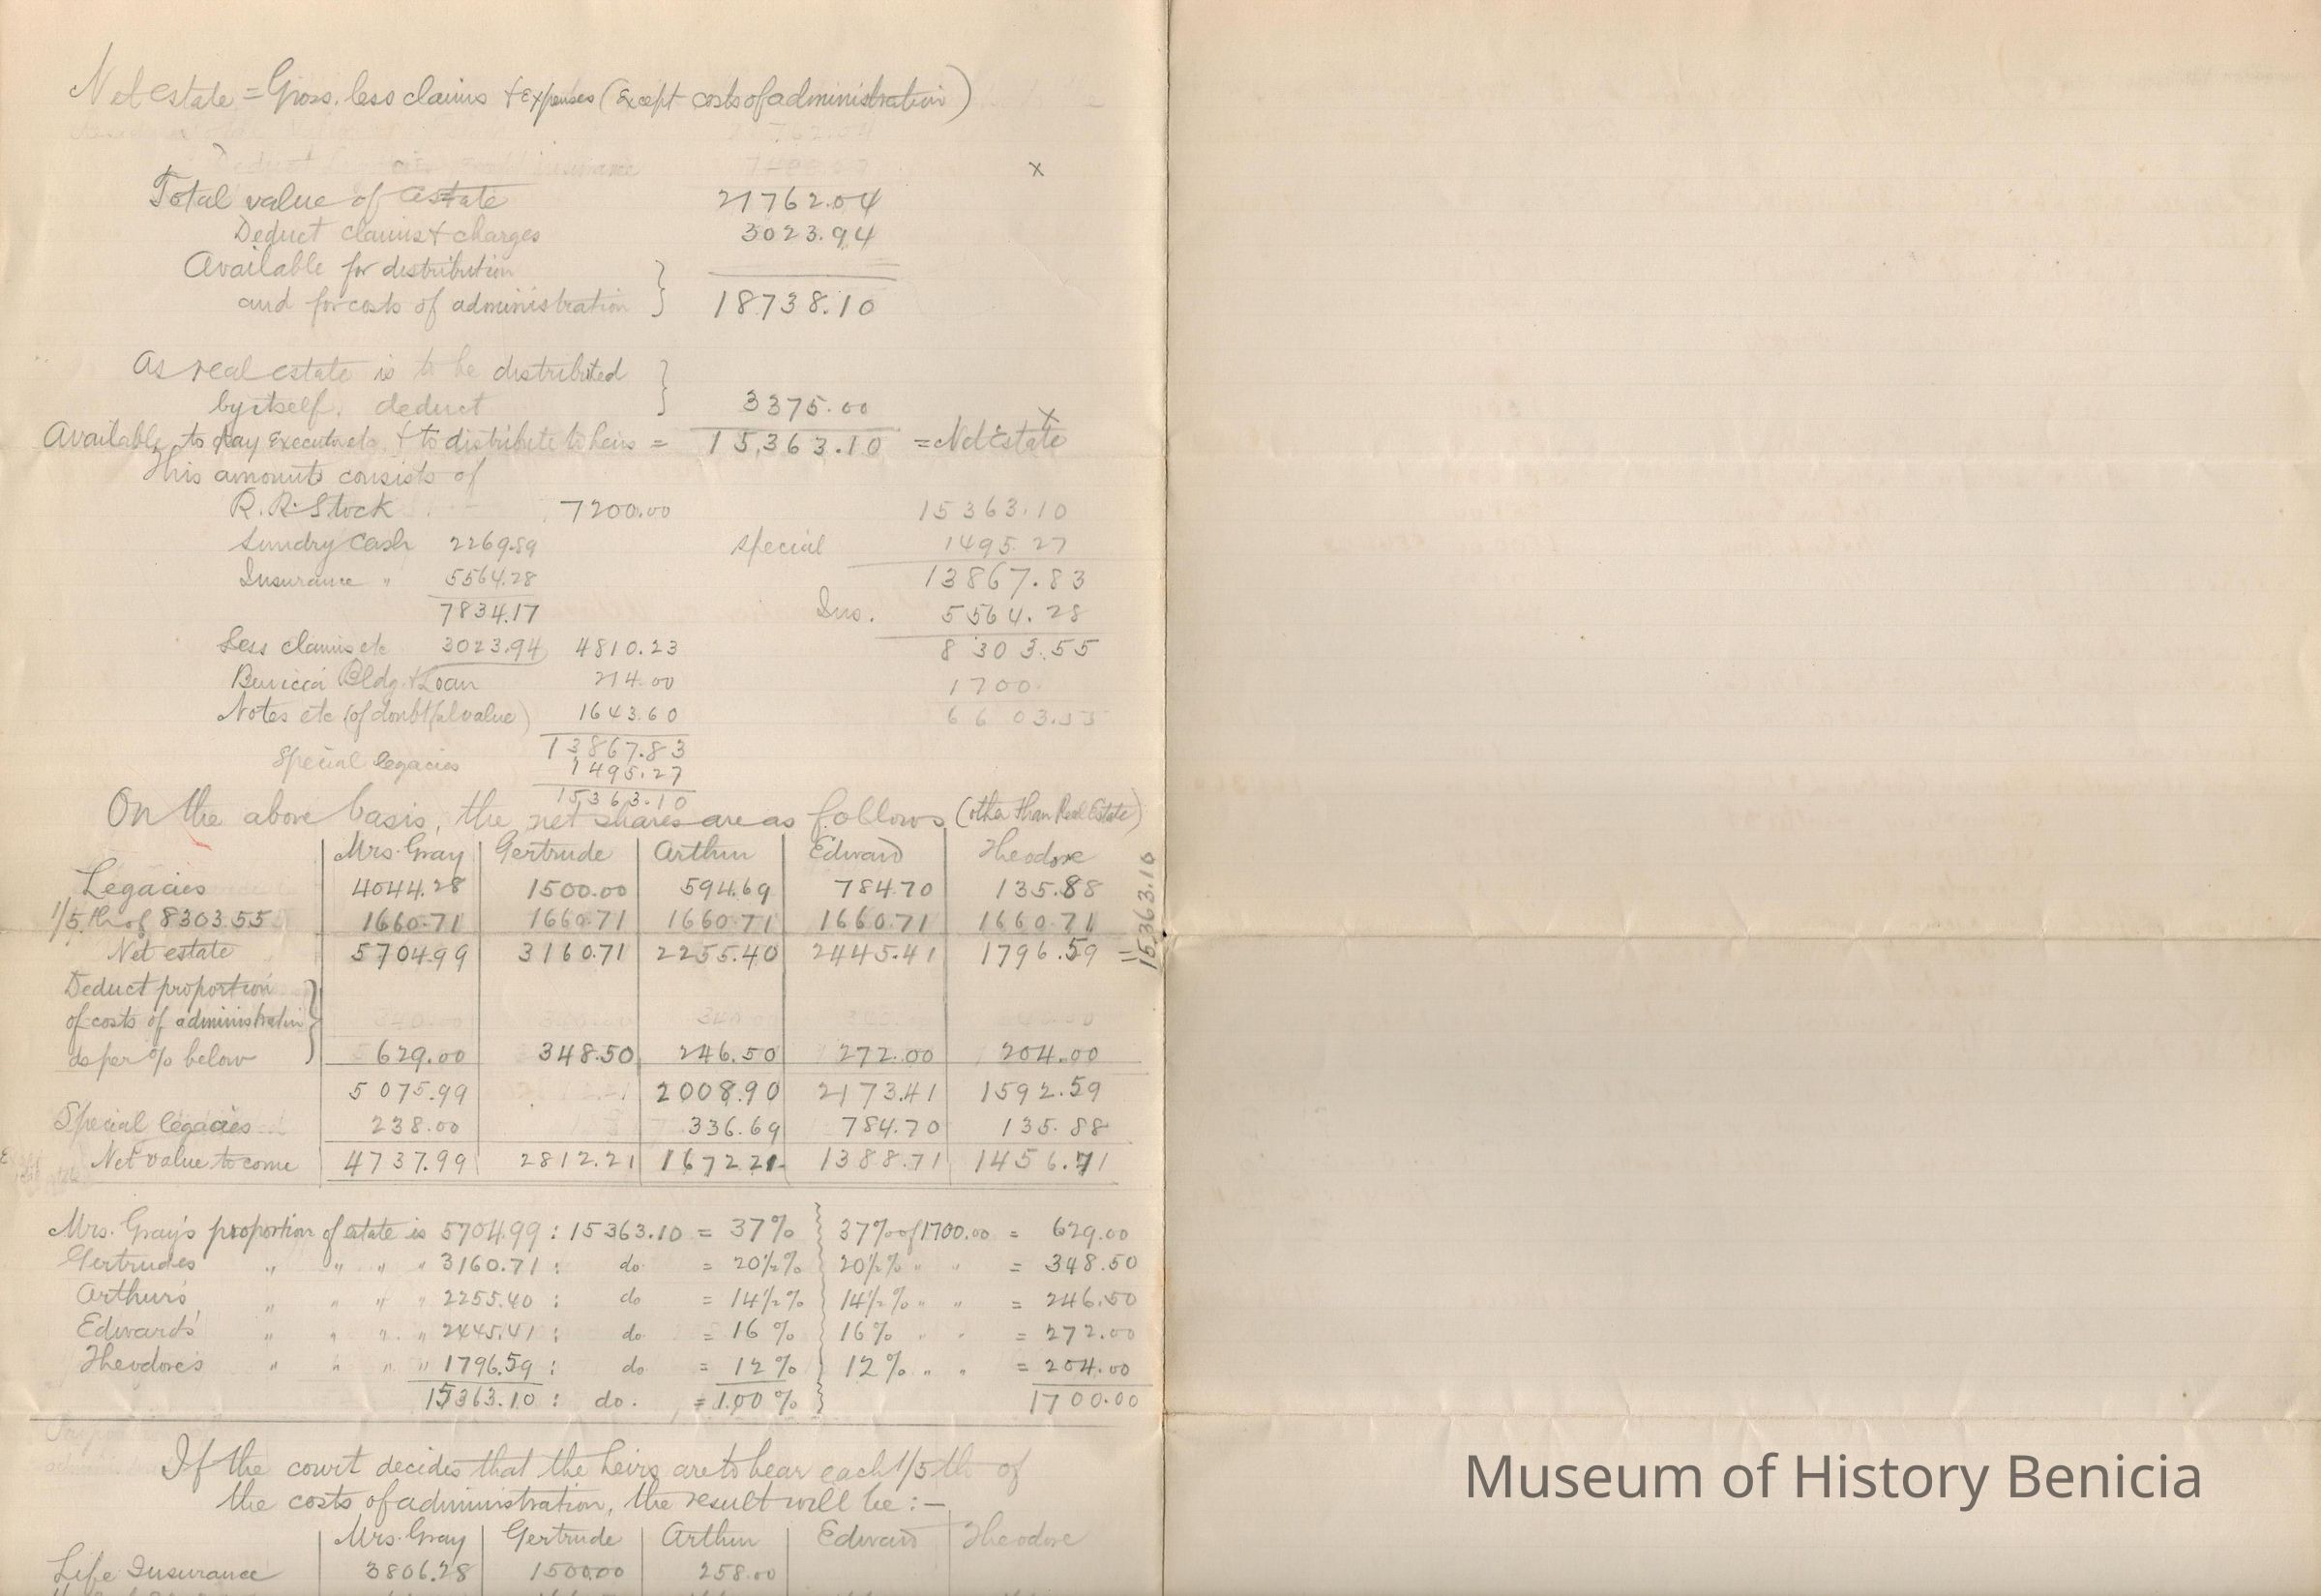 Net estate = Gross, less claims & Expenses (Except costs of administration)
x
Total value of estate 21762.04
Deduct claims & charges 3023.94
Available for distribution
and for costs of administration } 18738.10
As real estate is to be distributed
by itself, deduct } 3375.00
x
Available to pay Executor etc. & to distribute to heirs = 15,363.10 = Net Estate
This amounts consists of
R.R. Stock 7200.00 15363.10
Sundry Cash 2269.89 special 1495.27
Insurance " 5564.28 13867.83
7834.17 Ins. 5564.28
Less claims etc 3023.94 4810.23 8303.55
Benicia Bldg. & Loan 214.00 1700.
Notes etc (of doubtful value) 1643.60 6603.55
13867.83
Special legacies 1495.27
15363.10
On the above basis, the net shares are as follows (other than Real Estate)
Mrs. Gray Gertrude Arthur Edward Theodore
Legacies 4044.28 1500.00 594.69 784.70 135.88
1/5th of 8303.55 1660.71 1660.71 1660.71 1660.71 1660.71
Net estate 5704.99 3160.71 2255.40 2445.41 1796.59 = 15,363.10
Deduct proportion
of costs of administration
as per % below } 629.00 348.50 246.50 272.00 204.00
5075.99 2008.90 2173.41 1592.59
Special legacies 238.00 336.69 784.70 135.88
Net value to come 4737.99 2812.21 1672.21 1388.71 1456.71
Mrs. Gray's proportion of estate is 5704.99 : 15363.10 = 37% } 37% of 1700.00 = 629.00
Gertrudes " " " " 3160.71 : do = 20 1/2% } 20 1/2% " " = 348.50
Arthur's " " " " 2255.40 : do = 14 1/2% } 14 1/2% " " = 246.50
Edward's " " " " 2445.41 : do = 16% } 16% " " = 272.00
Theodore's " " " " 1796.59 : do = 12% } 12% " " = 204.00
15363.10 : do. = 100% } 1700.00
If the court decides that the heirs are to bear each 1/5th of
the costs of administration, the result will be :—
Mrs. Gray Gertrude Arthur Edward Theodore
Life Insurance 3806.28 1500.00 258.00
Museum of History Benicia